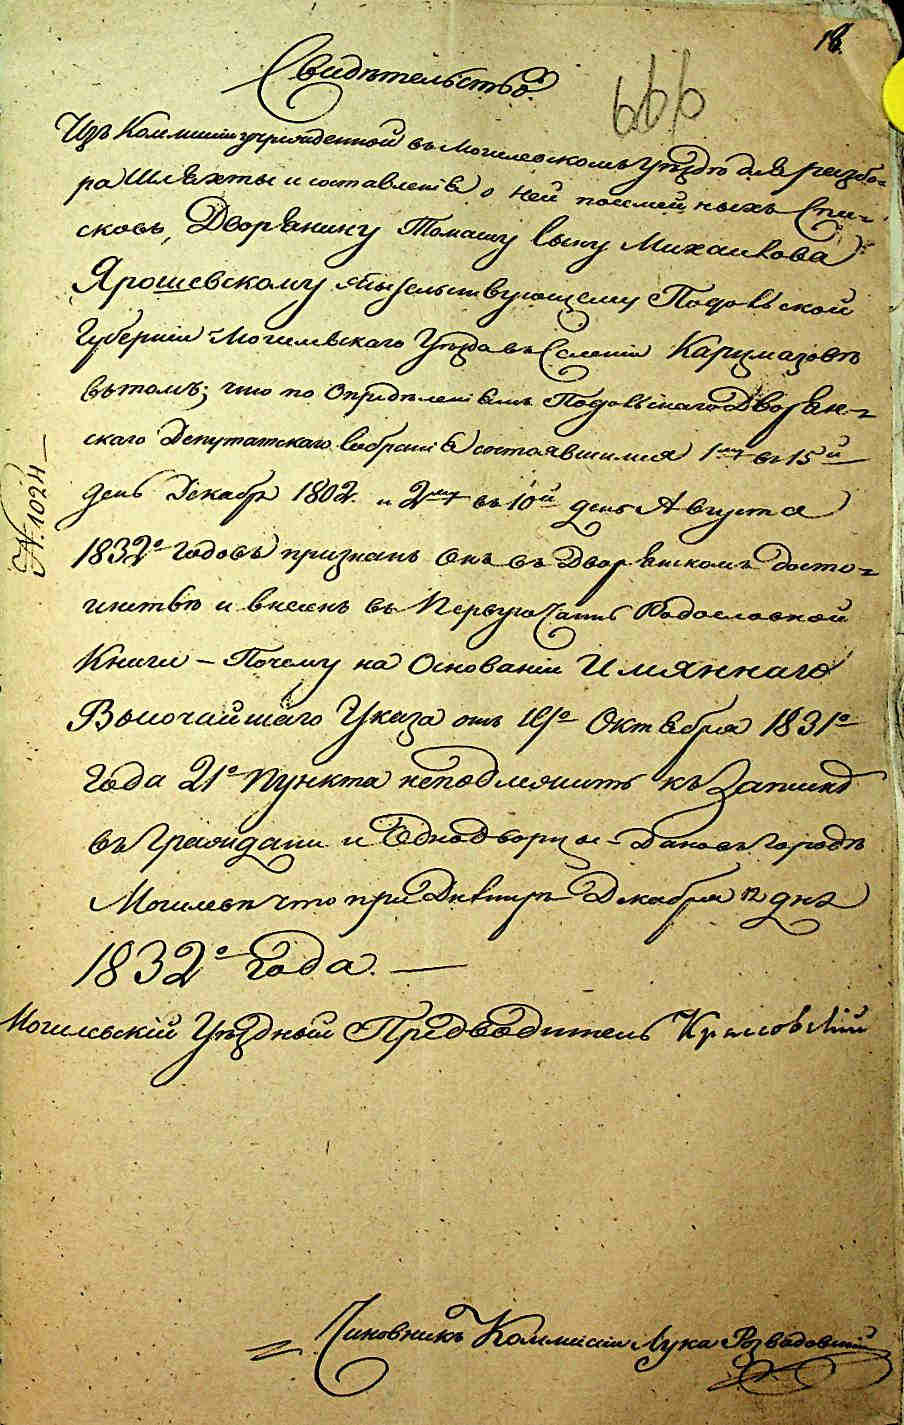 18.
Свидѣтельство.
666
Изъ Коммисіи учрежденной въ Могилевскомъ Уѣздѣ для разбо=
ра Шляхты и составленія о ней посемейныхъ Спи=
сковъ, Дворянину Томашу сыну Михайлова
Ярошевскому жительствующему Подольской
Губерніи Могилевскаго Уѣзда въ Селеніи
въ томъ; что по Опредѣленіямъ Подольскаго Дворян=
скаго Депутатскаго Собранія состоявшимся 1му въ 15й
день Декабря 1802. и 2му въ 10й день Августа
1832го годовъ признанъ Онъ въ Дворянскомъ досто=
инствѣ и внесенъ въ Первую Часть Родословной
Книги – Почему на Основаніи Имяннаго
Высочайшаго Указа отъ 19го Октября 1831го
года 21го Пункта неподлежитъ къ Записке
въ Граждани и Однодворцы – Данъ въ Городѣ
Могилевѣ что при Днѣстрѣ Декабря 12 дня
1832го года. —
№ 1024 —
Могилевскій Уѣздный Предводитель
Чиновникъ Коммисіи Лука Розвадовскій